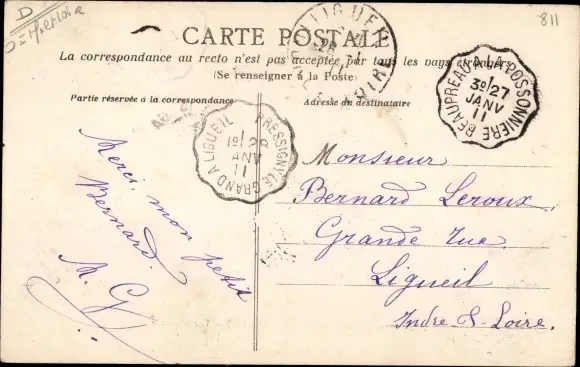 D
811
CARTE POSTALE
La correspondance au recto n'est pas acceptée par tous les pays étrangers
(Se renseigner à la Poste)
Partie réservée à la correspondance
Adresse du destinataire
LIGUEIL
BEAUPREAU A LA POSSONNIERE
3º/27
JANV
11
PRESSIGNY-LE-GRAND A LIGUEIL
1º/28
JANV
11
Merci, mon petit
Bernard.
M. G.
Monsieur
Bernard Leroux.
Grande rue
Ligueil
Indre & Loire.